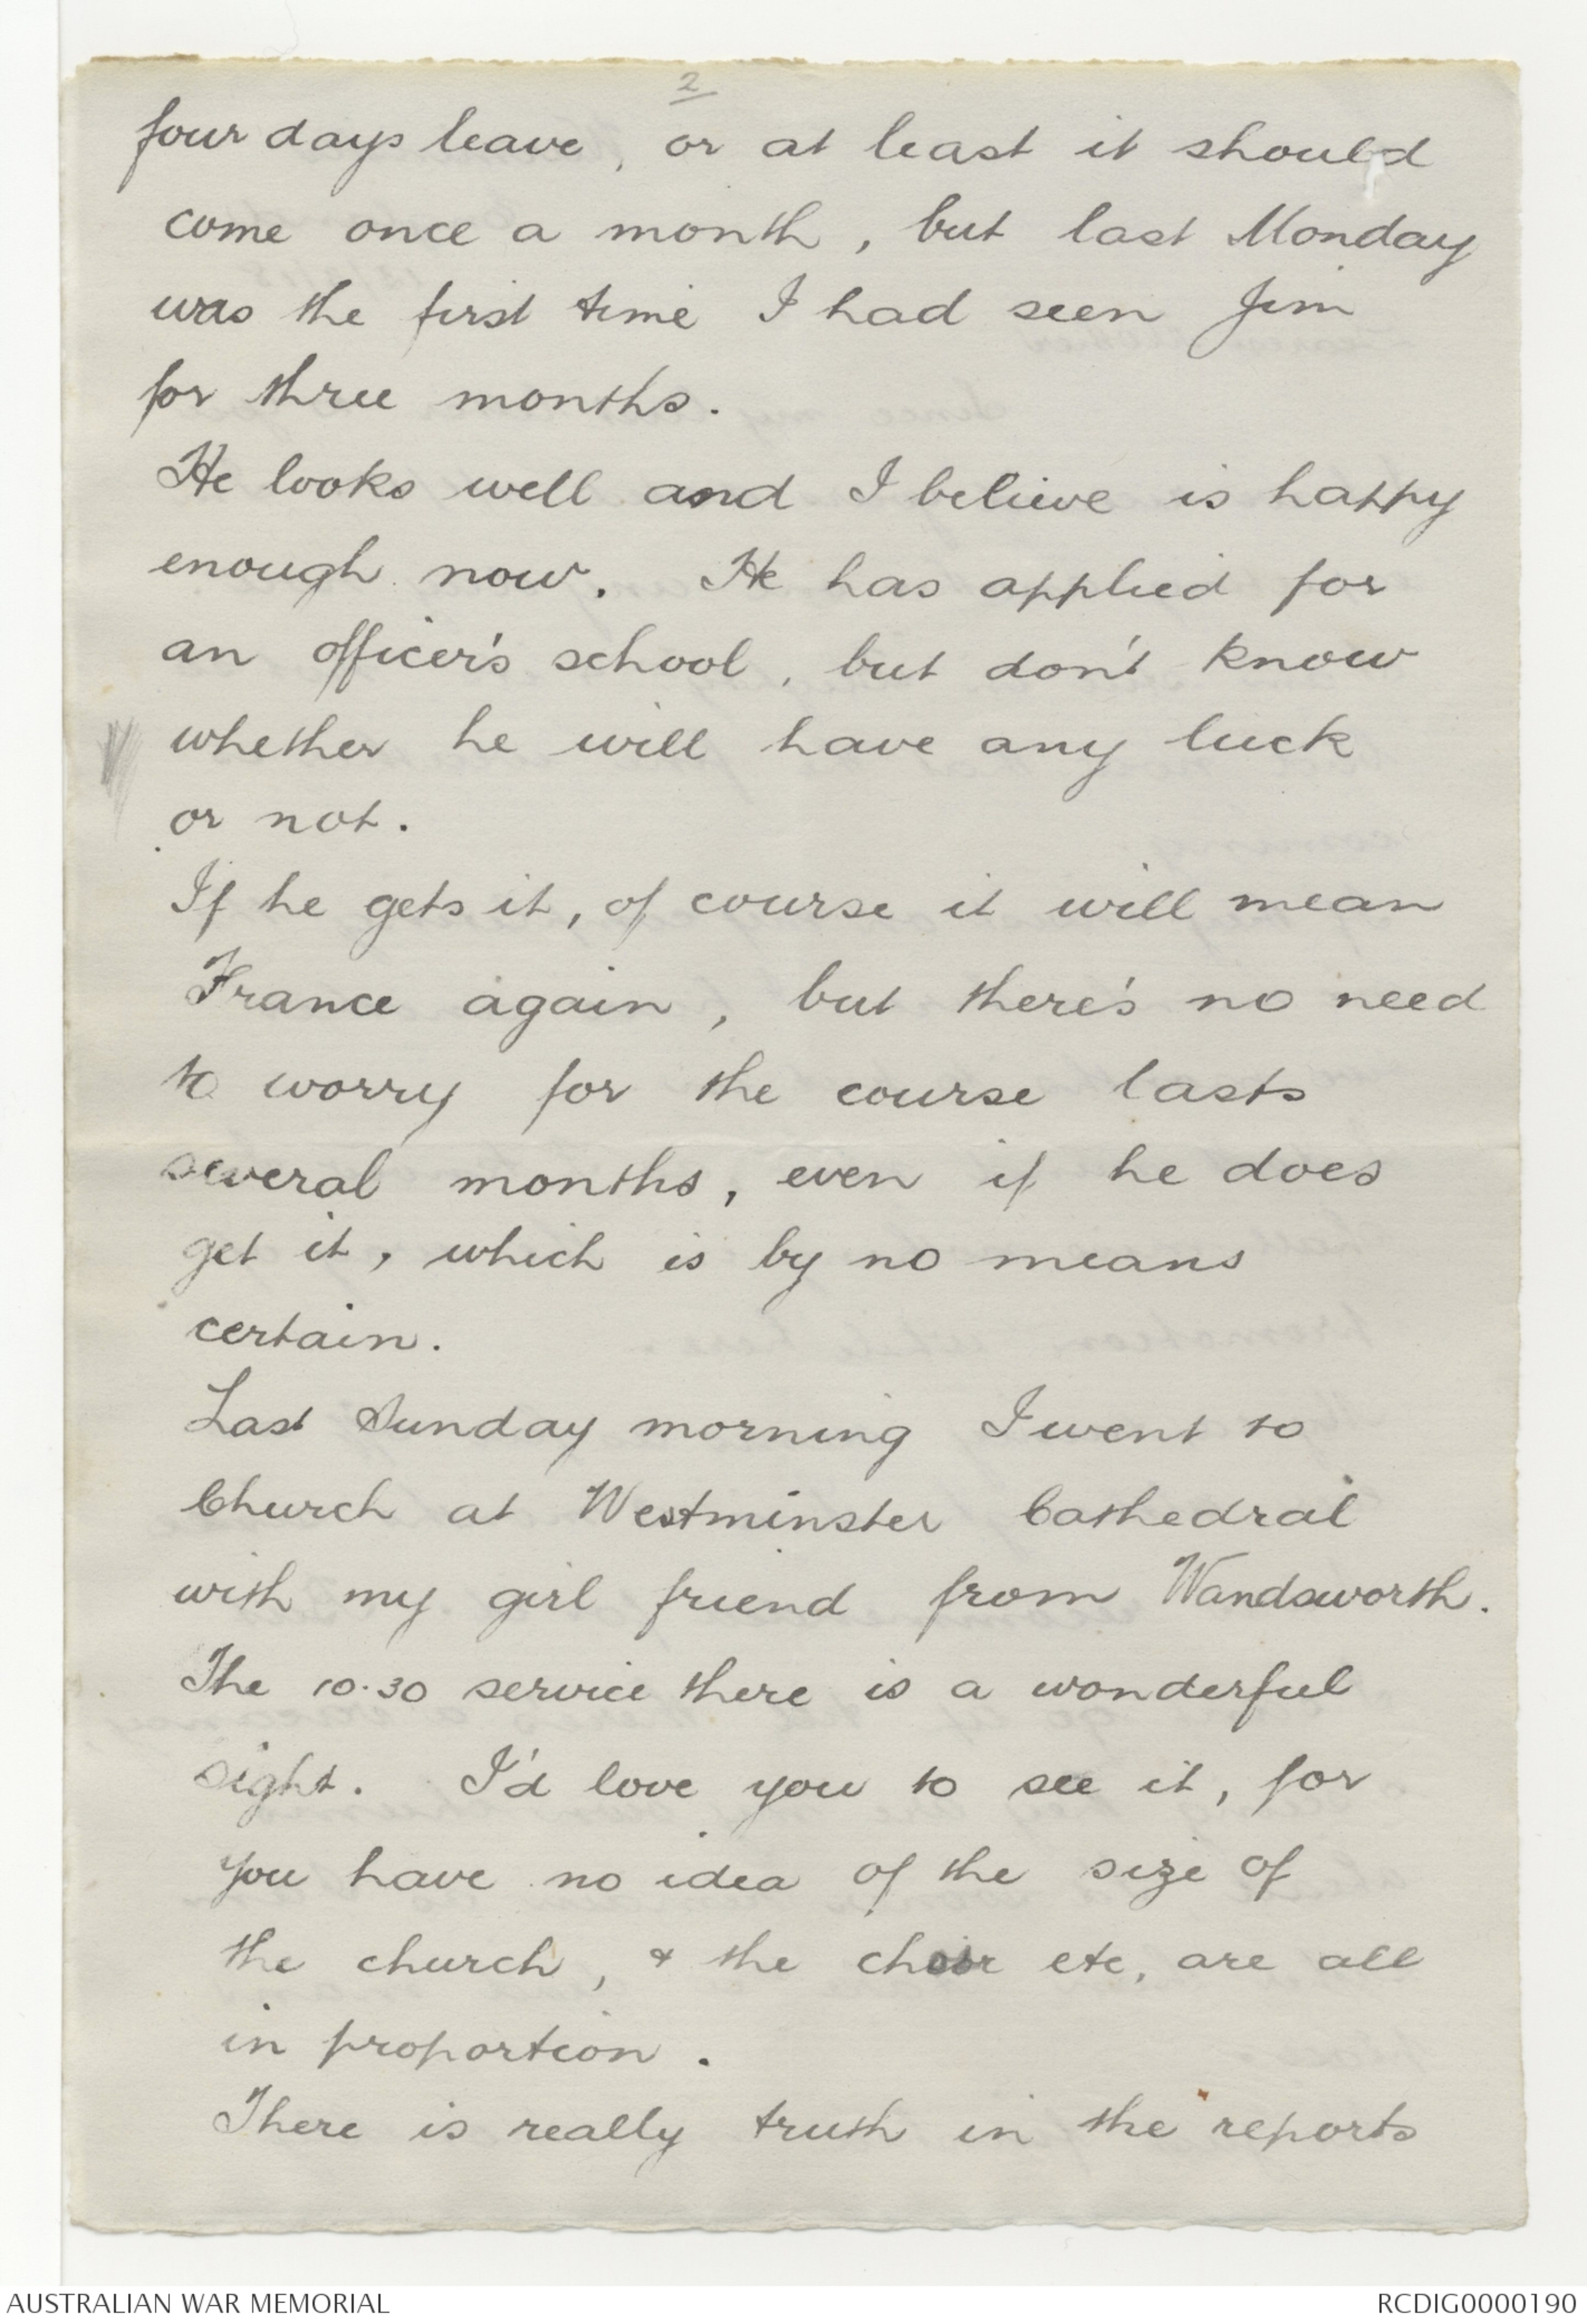 2
four days leave, or at least it should
come once a month, but last Monday
was the first time I had seen Jim
for three months.
He looks well and I believe is happy
enough now. He has applied for
an officer's school, but don't know
whether he will have any luck
or not.
If he gets it, of course it will mean
France again, but there's no need
to worry for the course lasts
several months, even if he does
get it, which is by no means
certain.
Last Sunday morning I went to
Church at Westminster Cathedral
with my girl friend from Wandsworth.
The 10.30 service there is a wonderful
sight. I'd love you to see it, for
you have no idea of the size of
the church, & the choir etc, are all
in proportion.
There is really truth in the reports
AUSTRALIAN WAR MEMORIAL
RCDIG0000190